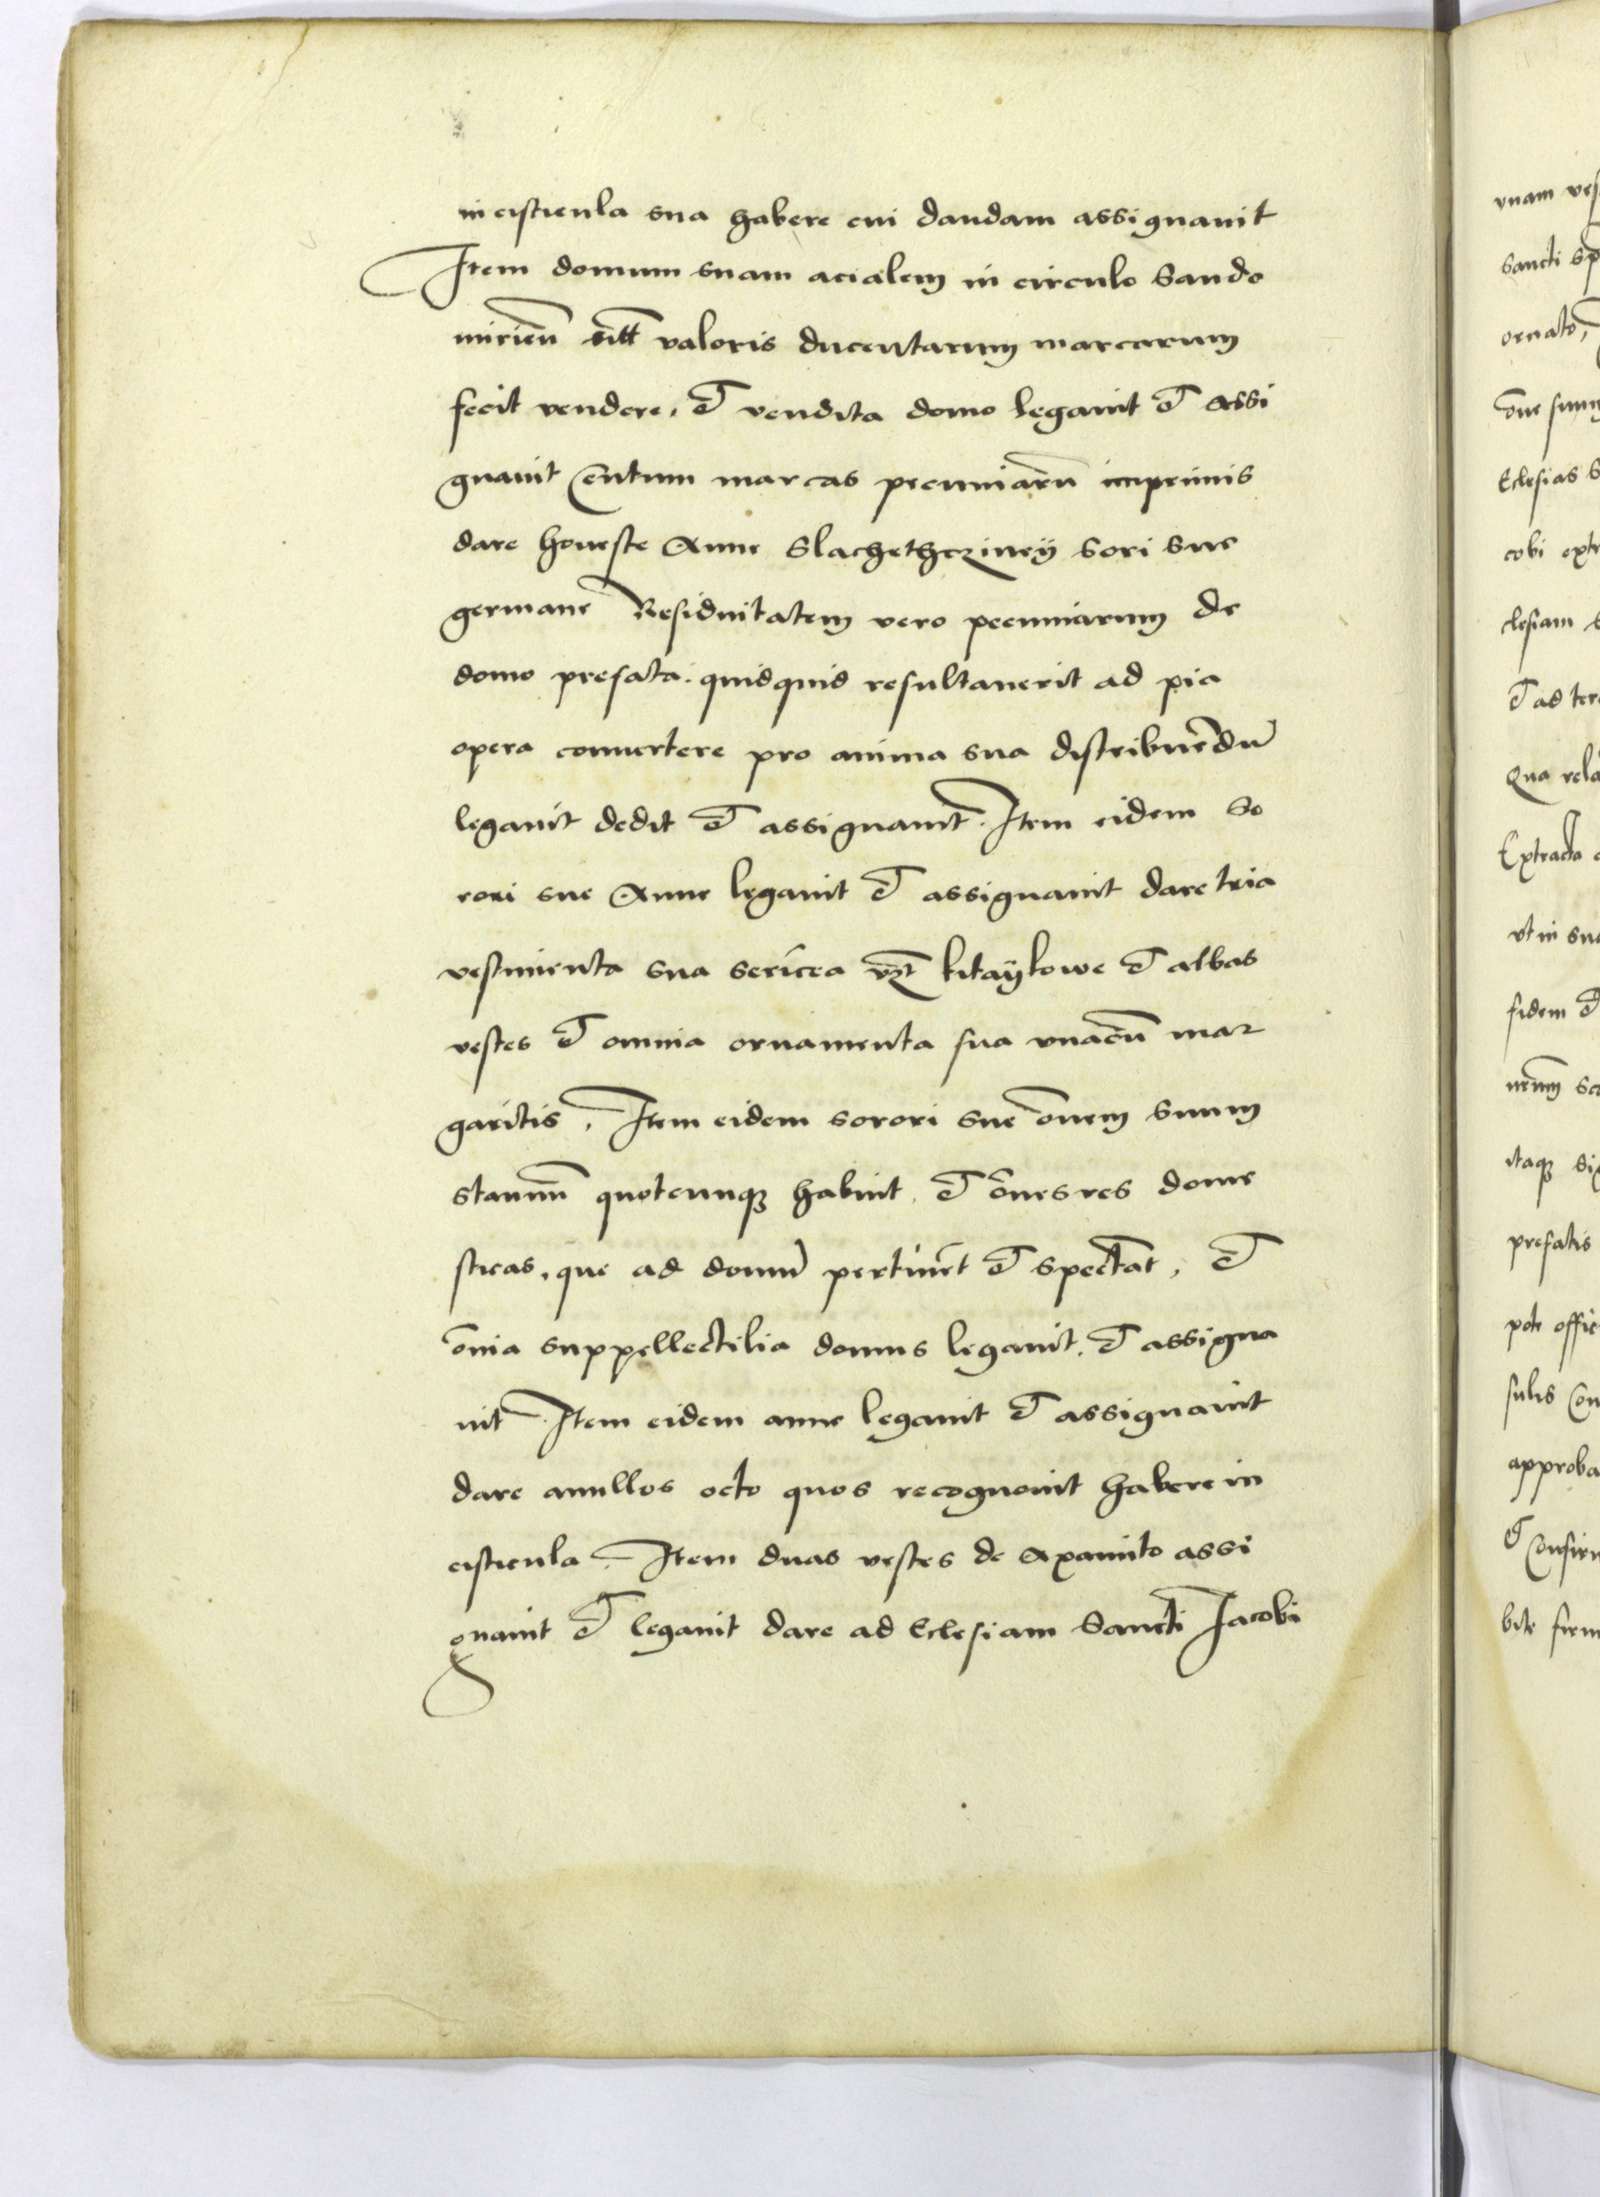 in cisticula sua habere cui dandam assignauit
Item domum suam acialem in circulo Sando
mirieñ valoris ducentarum marcarum
fecit vendere, et vendita domo legauit et assi
gnauit Centum marcas pecuniarũ imprimis
dare honeste Anne Slachethcziney sori sue
germane Residuitatem vero pecuniarum de
domo prefata. quidquid resultauerit ad pia
opera conuertere pro anima sua distribuẽdũ
legauit dedit et assignauit. Item eidem so
rori sue Anne legauit et assignauit dare tria
vestimenta sua sericea vzt kitaÿkowe et albas
vestes et omnia ornamenta sua vnacũ mar
garitis, Item eidem sorori sue õnem suum
stannũ quotcunqꝫ habuit, et õnes res dome
sticas, que ad domũ pertinẽt et spectãt, et
õnia suppellectilia domus legauit, et assigna
uit. Item eidem anne legauit et assignauit
dare anullos octo quos recognouit habere in
cisticula. Item duas vestes de Axamito assi
gnauit et legauit dare ad Eclesiam Sancti Jacobi
vnam ves
sancti sp
ornato,
õne sum
Eclesias S
cobi extr
clesiam s
et ad ter
Qua rela
Extracta
vt in sua
fidem et
itaqꝫ si
prefatis
pote offic
sulis con
approba
et Confirm
bite firm